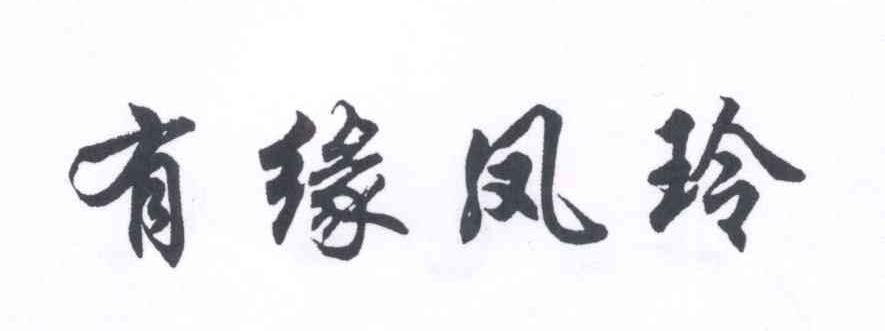 有缘凤玲